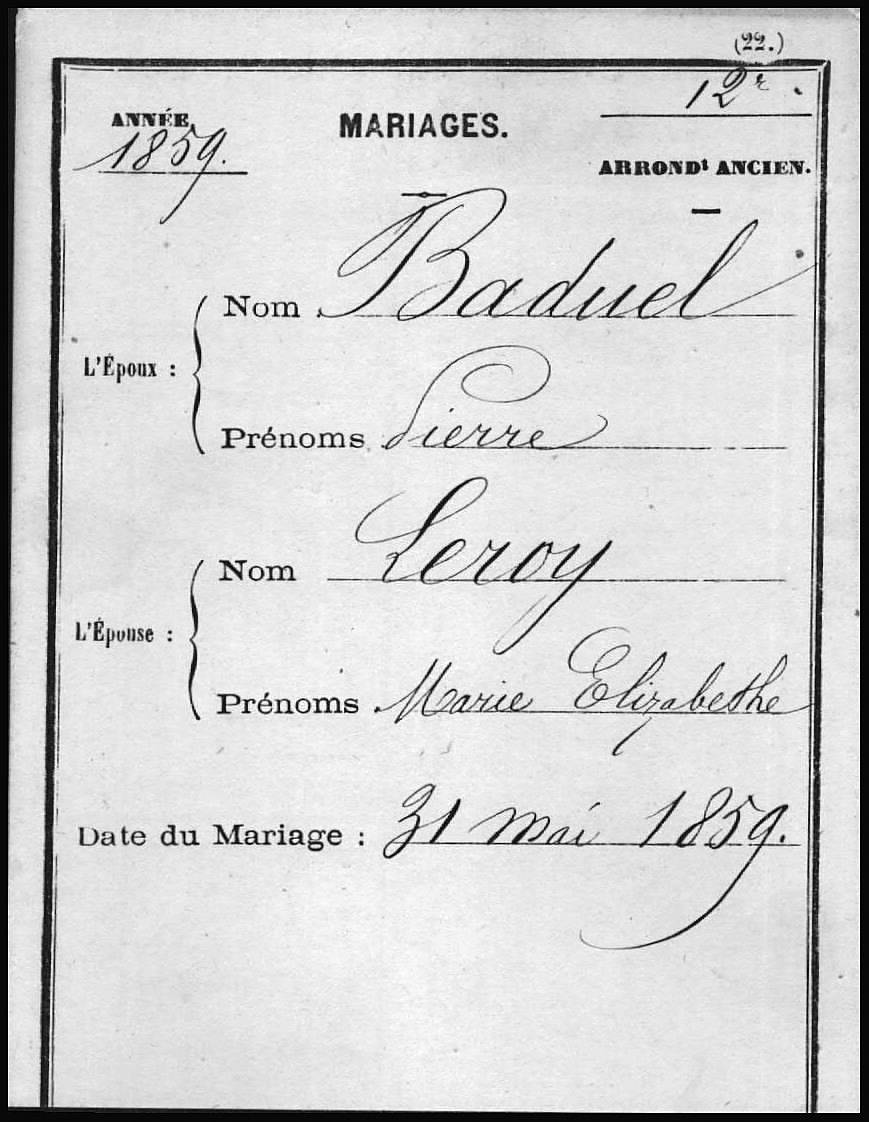 (22.)
ANNÉE
1859.
MARIAGES.
12e
ARRONDt ANCIEN.
L'Époux :
Nom Baduel
Prénoms Pierre
L'Épouse :
Nom Leroy
Prénoms Marie Elizabethe
Date du Mariage : 31 mai 1859.